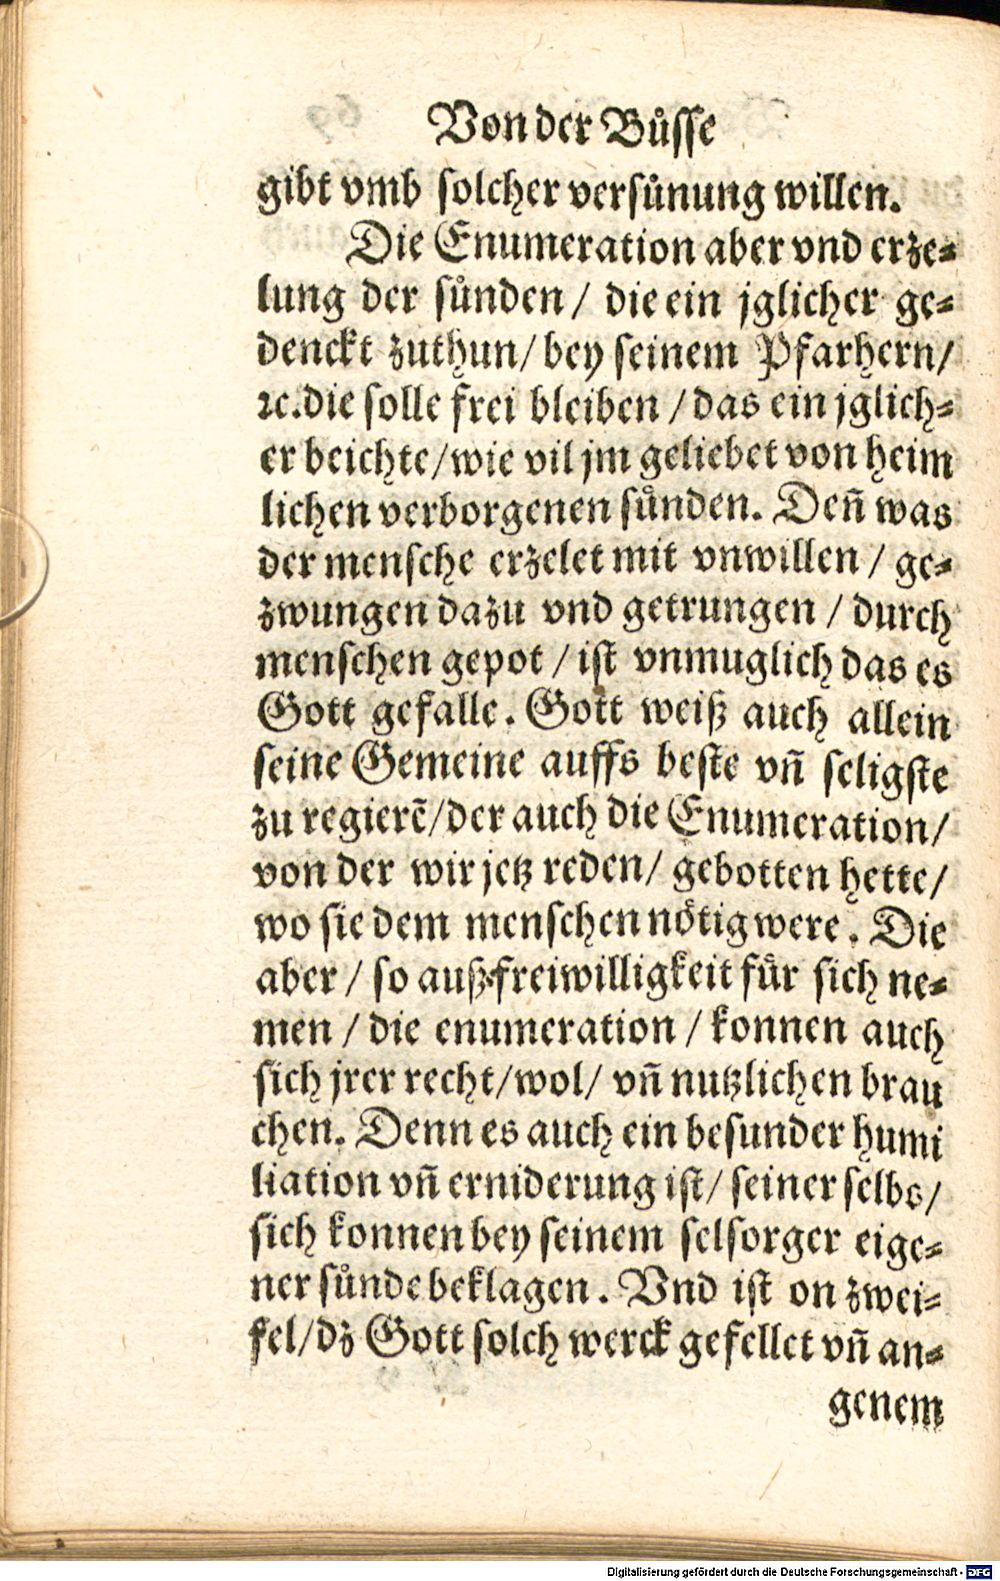 Von der Buͤsse
gibt vmb solcher versuͤnung willen.
Die Enumeration aber vnd erze⸗
lung der suͤnden / die ein jglicher ge⸗
denckt zuthun / bey seinem Pfarhern /
ꝛc. die solle frei bleiben / das ein jglich⸗
er beichte / wie vil jm geliebet von heim
lichen verborgenen suͤnden. Deñ was
der mensche erzelet mit vnwillen / ge⸗
zwungen dazu vnd getrungen / durch
menschen gepot / ist vnmuglich das es
Gott gefalle. Gott weiß auch allein
seine Gemeine auffs beste vñ seligste
zu regierẽ / der auch die Enumeration /
von der wir jetz reden / gebotten hette /
wo sie dem menschen noͤtig were. Die
aber / so auß freiwilligkeit fuͤr sich ne⸗
men / die enumeration / konnen auch
sich jrer recht / wol / vñ nutzlichen brau
chen. Denn es auch ein besunder humi
liation vñ erniderung ist / seiner selbs /
sich konnen bey seinem selsorger eige⸗
ner suͤnde beklagen. Vnd ist on zwei⸗
fel / dz Gott solch werck gefellet vñ an⸗
genem
Digitalisierung gefördert durch die Deutsche Forschungsgemeinschaft - DFG